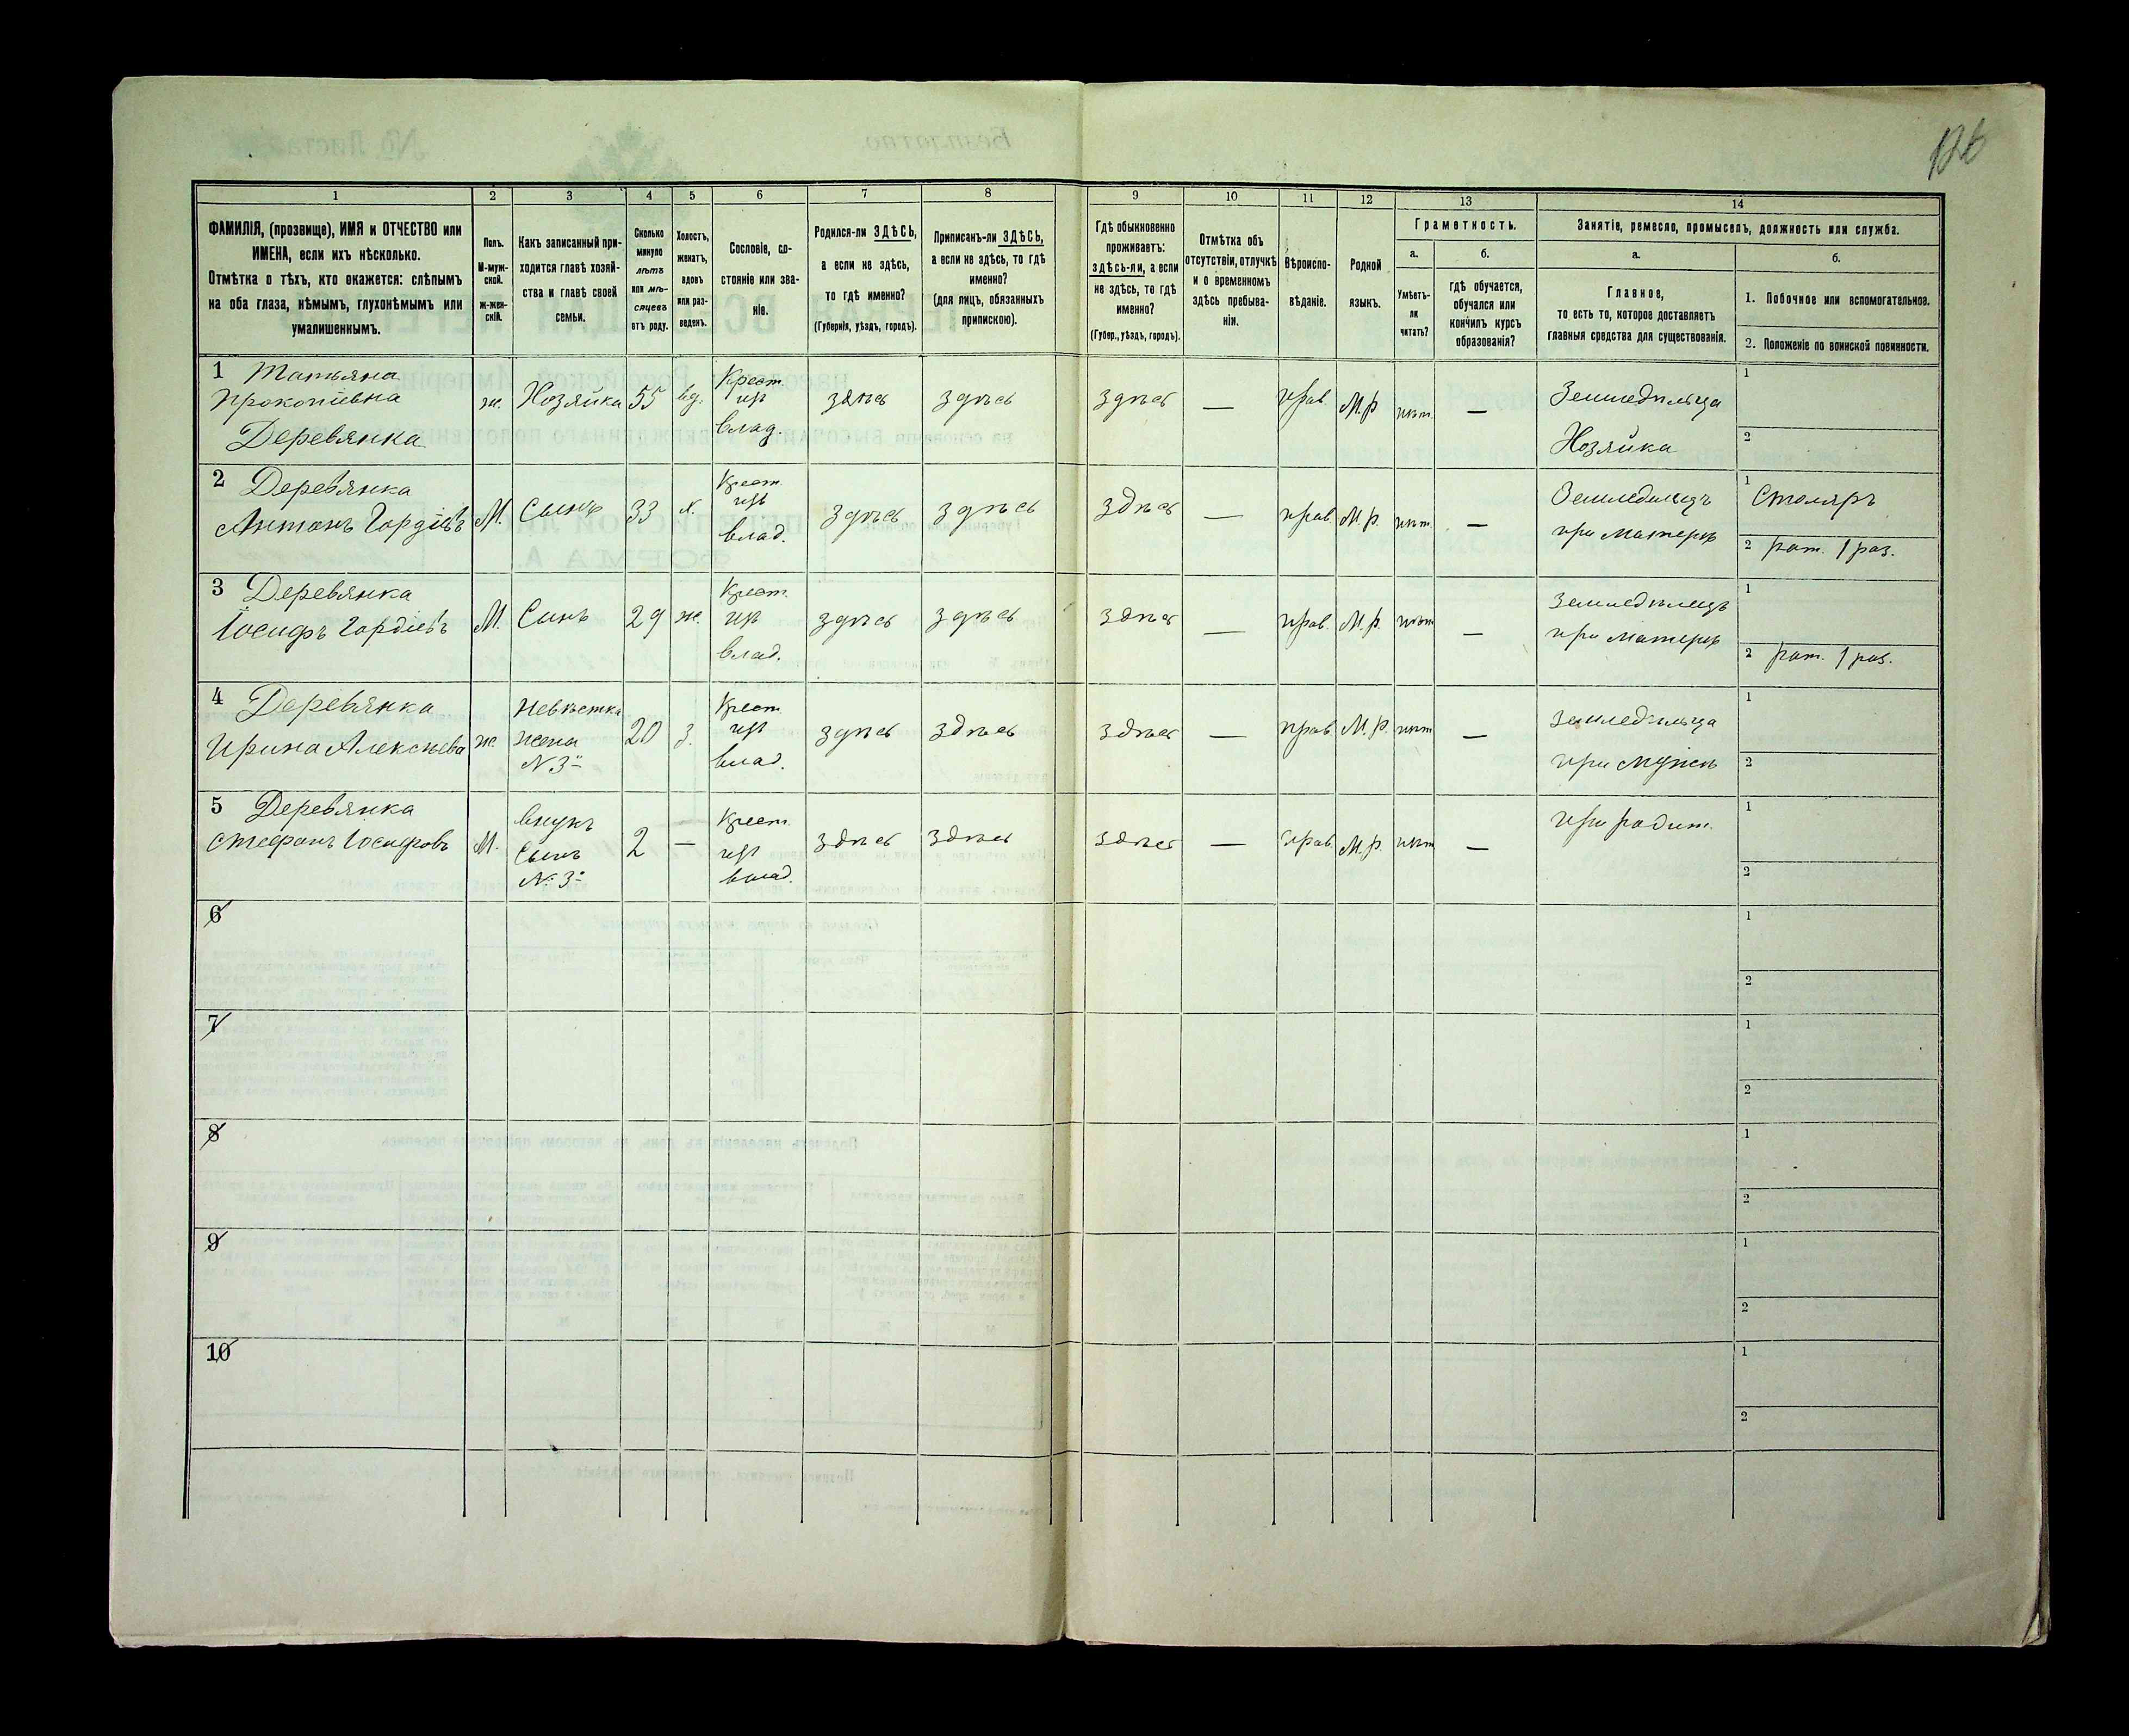 126
1
2
3
4
5
6
7
8
9
10
11
12
13
14
ФАМИЛІЯ, (прозвище), ИМЯ и ОТЧЕСТВО или
ИМЕНА, если ихъ нѣсколько.
Отмѣтка о тѣхъ, кто окажется: слѣпымъ
на оба глаза, нѣмымъ, глухонѣмымъ или
умалишеннымъ.
Полъ.
М-муж-
ской.
ж-жен-
скій.
Какъ записанный при-
ходится главѣ хозяй-
ства и главѣ своей
семьи.
Сколько
минуло
лѣтъ
или мѣ-
сяцевъ
отъ роду.
Холостъ,
женатъ,
вдовъ
или раз-
веденъ.
Сословіе, со-
стояніе или зва-
ніе.
Родился-ли ЗДѢСЬ,
а если не здѣсь,
то гдѣ именно?
(Губернія, уѣздъ, городъ).
Приписанъ-ли ЗДѢСЬ,
а если не здѣсь, то гдѣ
именно?
(для лицъ, обязанныхъ
припискою).
Гдѣ обыкновенно
проживаетъ:
здѣсь-ли, а если
не здѣсь, то гдѣ
именно?
(Губер., уѣздъ, городъ).
Отмѣтка объ
отсутствіи, отлучкѣ
и о временномъ
здѣсь пребыва-
ніи.
Вѣроиспо-
вѣданіе.
Родной
языкъ.
Грамотность.
а.
Умѣетъ-
ли
читать?
б.
гдѣ обучается,
обучался или
кончилъ курсъ
образованія?
Занятіе, ремесло, промыселъ, должность или служба.
а.
Главное,
то есть то, которое доставляетъ
главныя средства для существованія.
б.
1. Побочное или вспомогательное.
2. Положеніе по воинской повинности.
1 Татьяна
Прокопіевна
Деревянка
ж.
Хозяйка
55
вд.
Крест.
изъ
влад.
здѣсь
здѣсь
здѣсь
—
прав.
М.р.
нѣт.
—
Земледѣлица
Хозяйка
1
2
2 Деревянка
Антонъ Гордіевъ
М.
Сынъ
33
х.
Крест.
изъ
влад.
здѣсь
здѣсь
здѣсь
—
прав.
М.р.
нѣт.
—
Земледѣлецъ
при матери
1 Столяръ
2 рат. 1 раз.
3 Деревянка
Іосифъ Гордіевъ
М.
Сынъ
29
ж.
Крест.
изъ
влад.
здѣсь
здѣсь
здѣсь
—
прав.
М.р.
нѣт
—
земледѣлецъ
при матери
1
2 рат. 1 раз.
4 Деревянка
Ирина Алексѣева
ж.
Невѣстка
жена
N 3й
20
з.
Крест.
изъ
влад.
здѣсь
здѣсь
здѣсь
—
прав.
М.р.
нѣт
—
земледѣлица
при мужѣ
1
2
5 Деревянка
Стефанъ Іосифовъ
М.
внукъ
сынъ
N: 3й
2
—
Крест.
изъ
влад.
здѣсь
здѣсь
здѣсь
—
прав.
М.р.
нѣт
—
при родит.
1
2
6
1
2
7
1
2
8
1
2
9
1
2
10
1
2